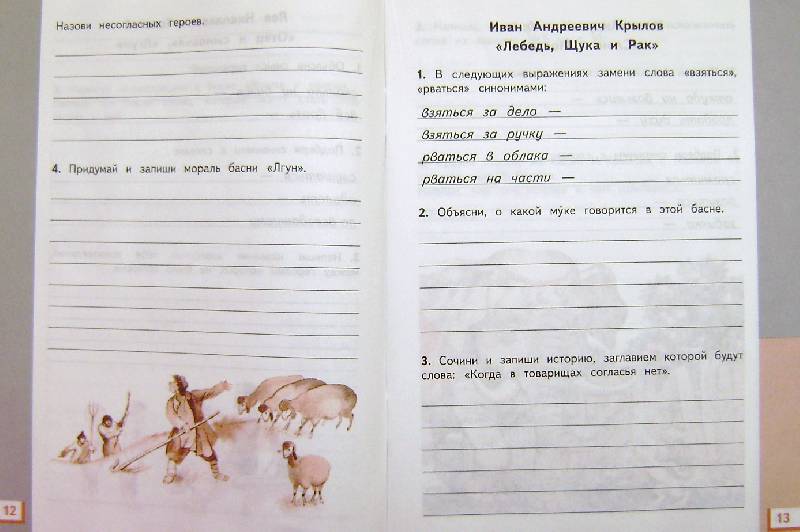 Назови несогласных героев.
4. Придумай и запиши мораль басни «Лгун».
12
Иван Андреевич Крылов
«Лебедь, Щука и Рак»
1. В следующих выражениях замени слова «взяться»,
«рваться» синонимами:
взяться за дело —
взяться за ручку —
рваться в облака —
рваться на части —
2. Объясни, о какой му́ке говорится в этой басне.
3. Сочини и запиши историю, заглавием которой будут
слова: «Когда в товарищах согласья нет».
13